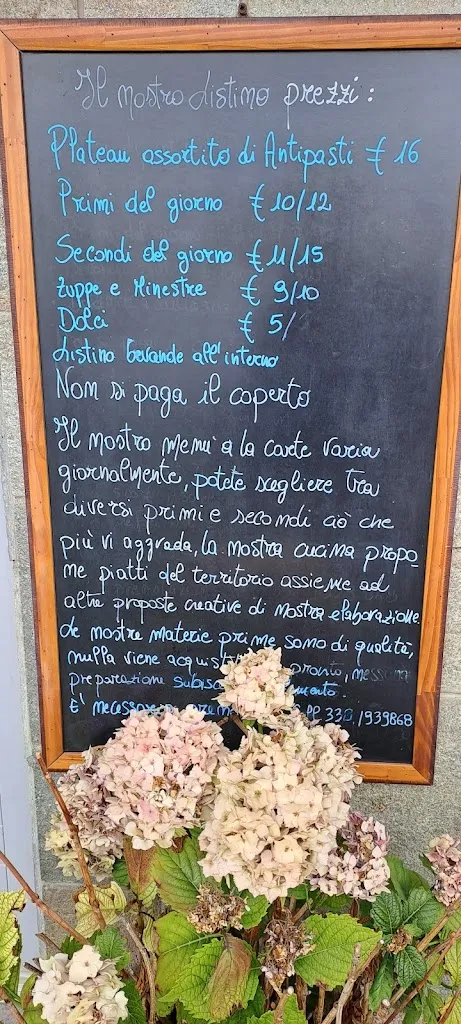 Il nostro listino prezzi:
Plateau assortito di Antipasti € 16
Primi del giorno € 10/12
Secondi del giorno € 11/15
Zuppe e Minestre € 9/10
Dolci € 5/
Listino bevande all'interno
Non si paga il coperto
Il nostro menu' a la carte varia
giornalmente, potete scegliere tra
diversi primi e secondi ciò che
più vi aggrada, la nostra cucina propo-
ne piatti del territorio assieme ad
altre proposte creative di nostra elaborazione
Le nostre materie prime sono di qualità,
nulla viene pronto, nessuna
preparazione
E' 330/939868